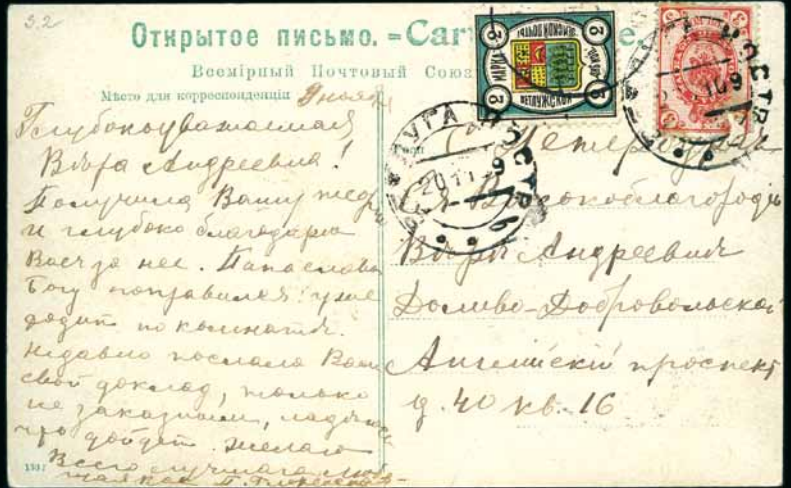 3.2
Открытое письмо. = Car
Всемірный Почтовый Союз
Мѣсто для корреспонденціи
9 ноября
Глубокоуважаемая
Вѣра Андреевна!
Получила Вашу
и глубоко благодарю
Васъ за нее. Папа слава
Богу поправился: уже
ходитъ по комнатѣ.
Недавно послала Вамъ
свой доклад, только
не заказным, надѣюсь
что дойдет. Желаю
Всего лучшаго
С. Петербургъ
Ея Высокоблагородію
Вѣрѣ Андреевнѣ
Доливо-Добровольской
Англійскій проспект
д. 40 кв. 16
МАРКА
ЗЕМСКОЙ ПОЧТЫ
3
3
3
3
ЛУГА КОСТР
20 11 9
3
3